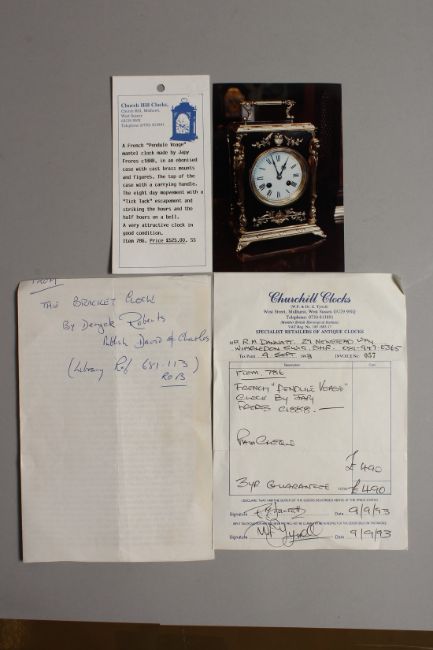 Church Hill Clocks,
Church Hill, Midhurst,
West Sussex
GU29 9NX
A French "Pendule Voage"
mantel clock made by Japy
Freres c1880, in an ebonised
case with cast brass mounts
and figures. The top of the
case with a carrying handle.
The eight day mopvement with a
"Tick Tack" escapement and
striking the hours and the
half hours on a bell.
A very attractive clock in
good condition.
Item 786. Price £525.00. SS
From
The Bracket Clock
By Deryck Roberts
Publish David & Charles
(Library Ref 681-113)
ROB
Churchill Clocks
West Street, Midhurst, West Sussex GU29 9NQ
Telephone: 0730 813891
SPECIALIST RETAILERS OF ANTIQUE CLOCKS
WIMBLEDON SW19
9 SEPT
057
ITEM 786
FRENCH "PENDULE VOAGE"
CLOCK BY JAPY
FRERES
£490
3YR GUARANTEE
£490
Signature
Date 9/9/93
Signature
Date 9/9/93